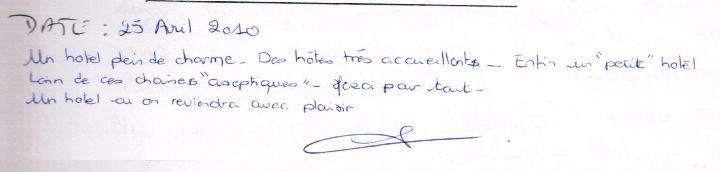 DATE : 25 Avril 2010
Un hotel plein de charme - Des hôtes très accueillants - Enfin un "petit" hotel
loin de ces chaines "aseptiques" - Merci pour tout -
Un hotel où on reviendra avec plaisir